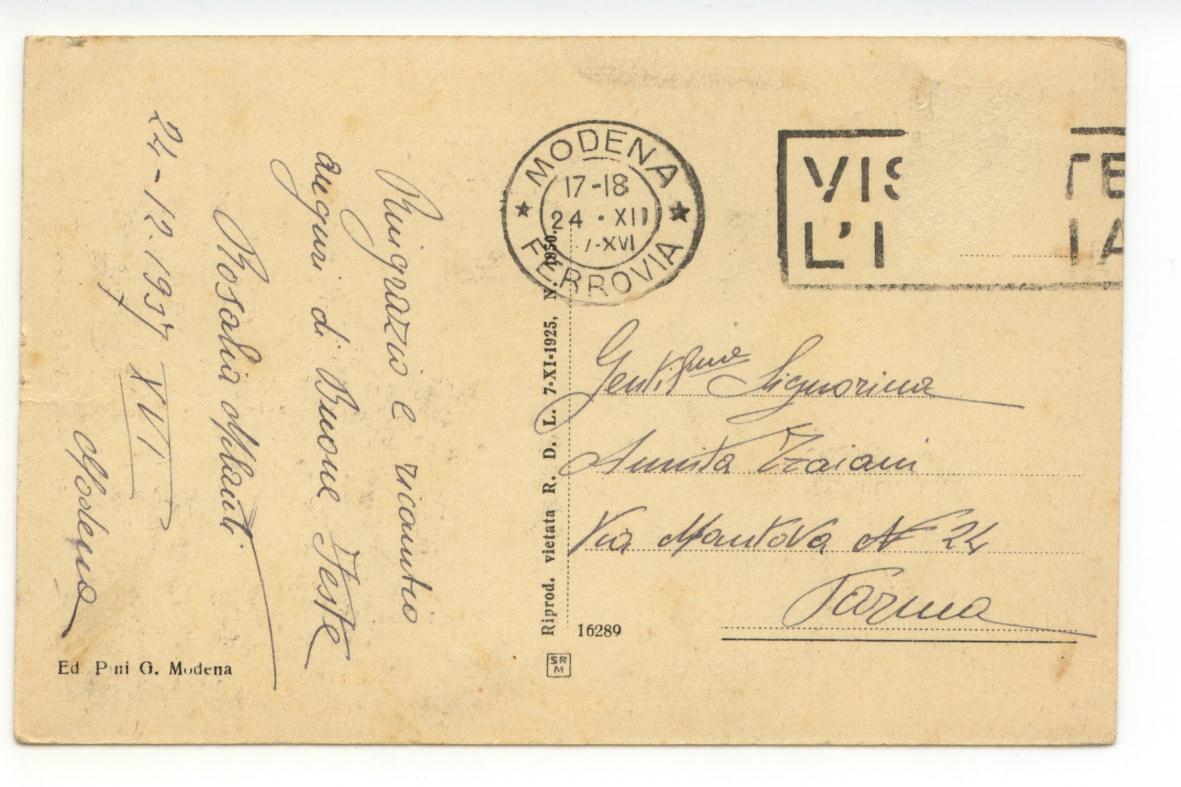 Ringrazio e ricambio
auguri di Buone Feste
Rosalia
24-12.1937 XVI
Modena
Ed P ni G. Modena
Riprod. vietata R. D. L. 7-XI-1925, N. 1950.
16289
SR
M
MODENA
17-18
24 · XII
7-XVI
FERROVIA
VIS TE
L'I IA
Gentilma Signorina
Annita Traiani
Via Mantova N° 24
Parma